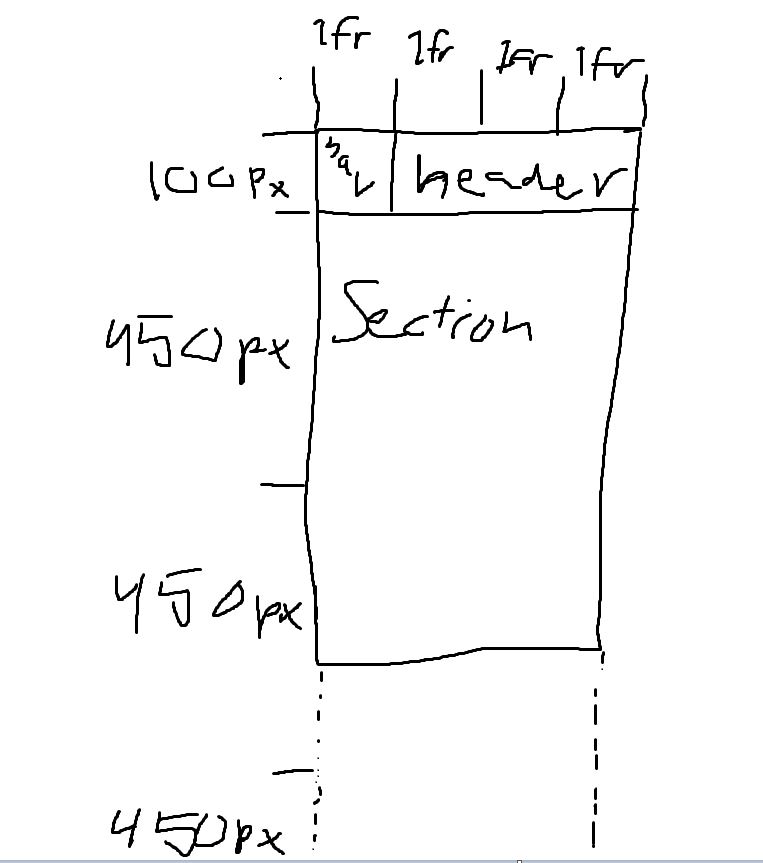 1fr 1fr 1fr 1fr
100px nav header
450px Section
450px
450px